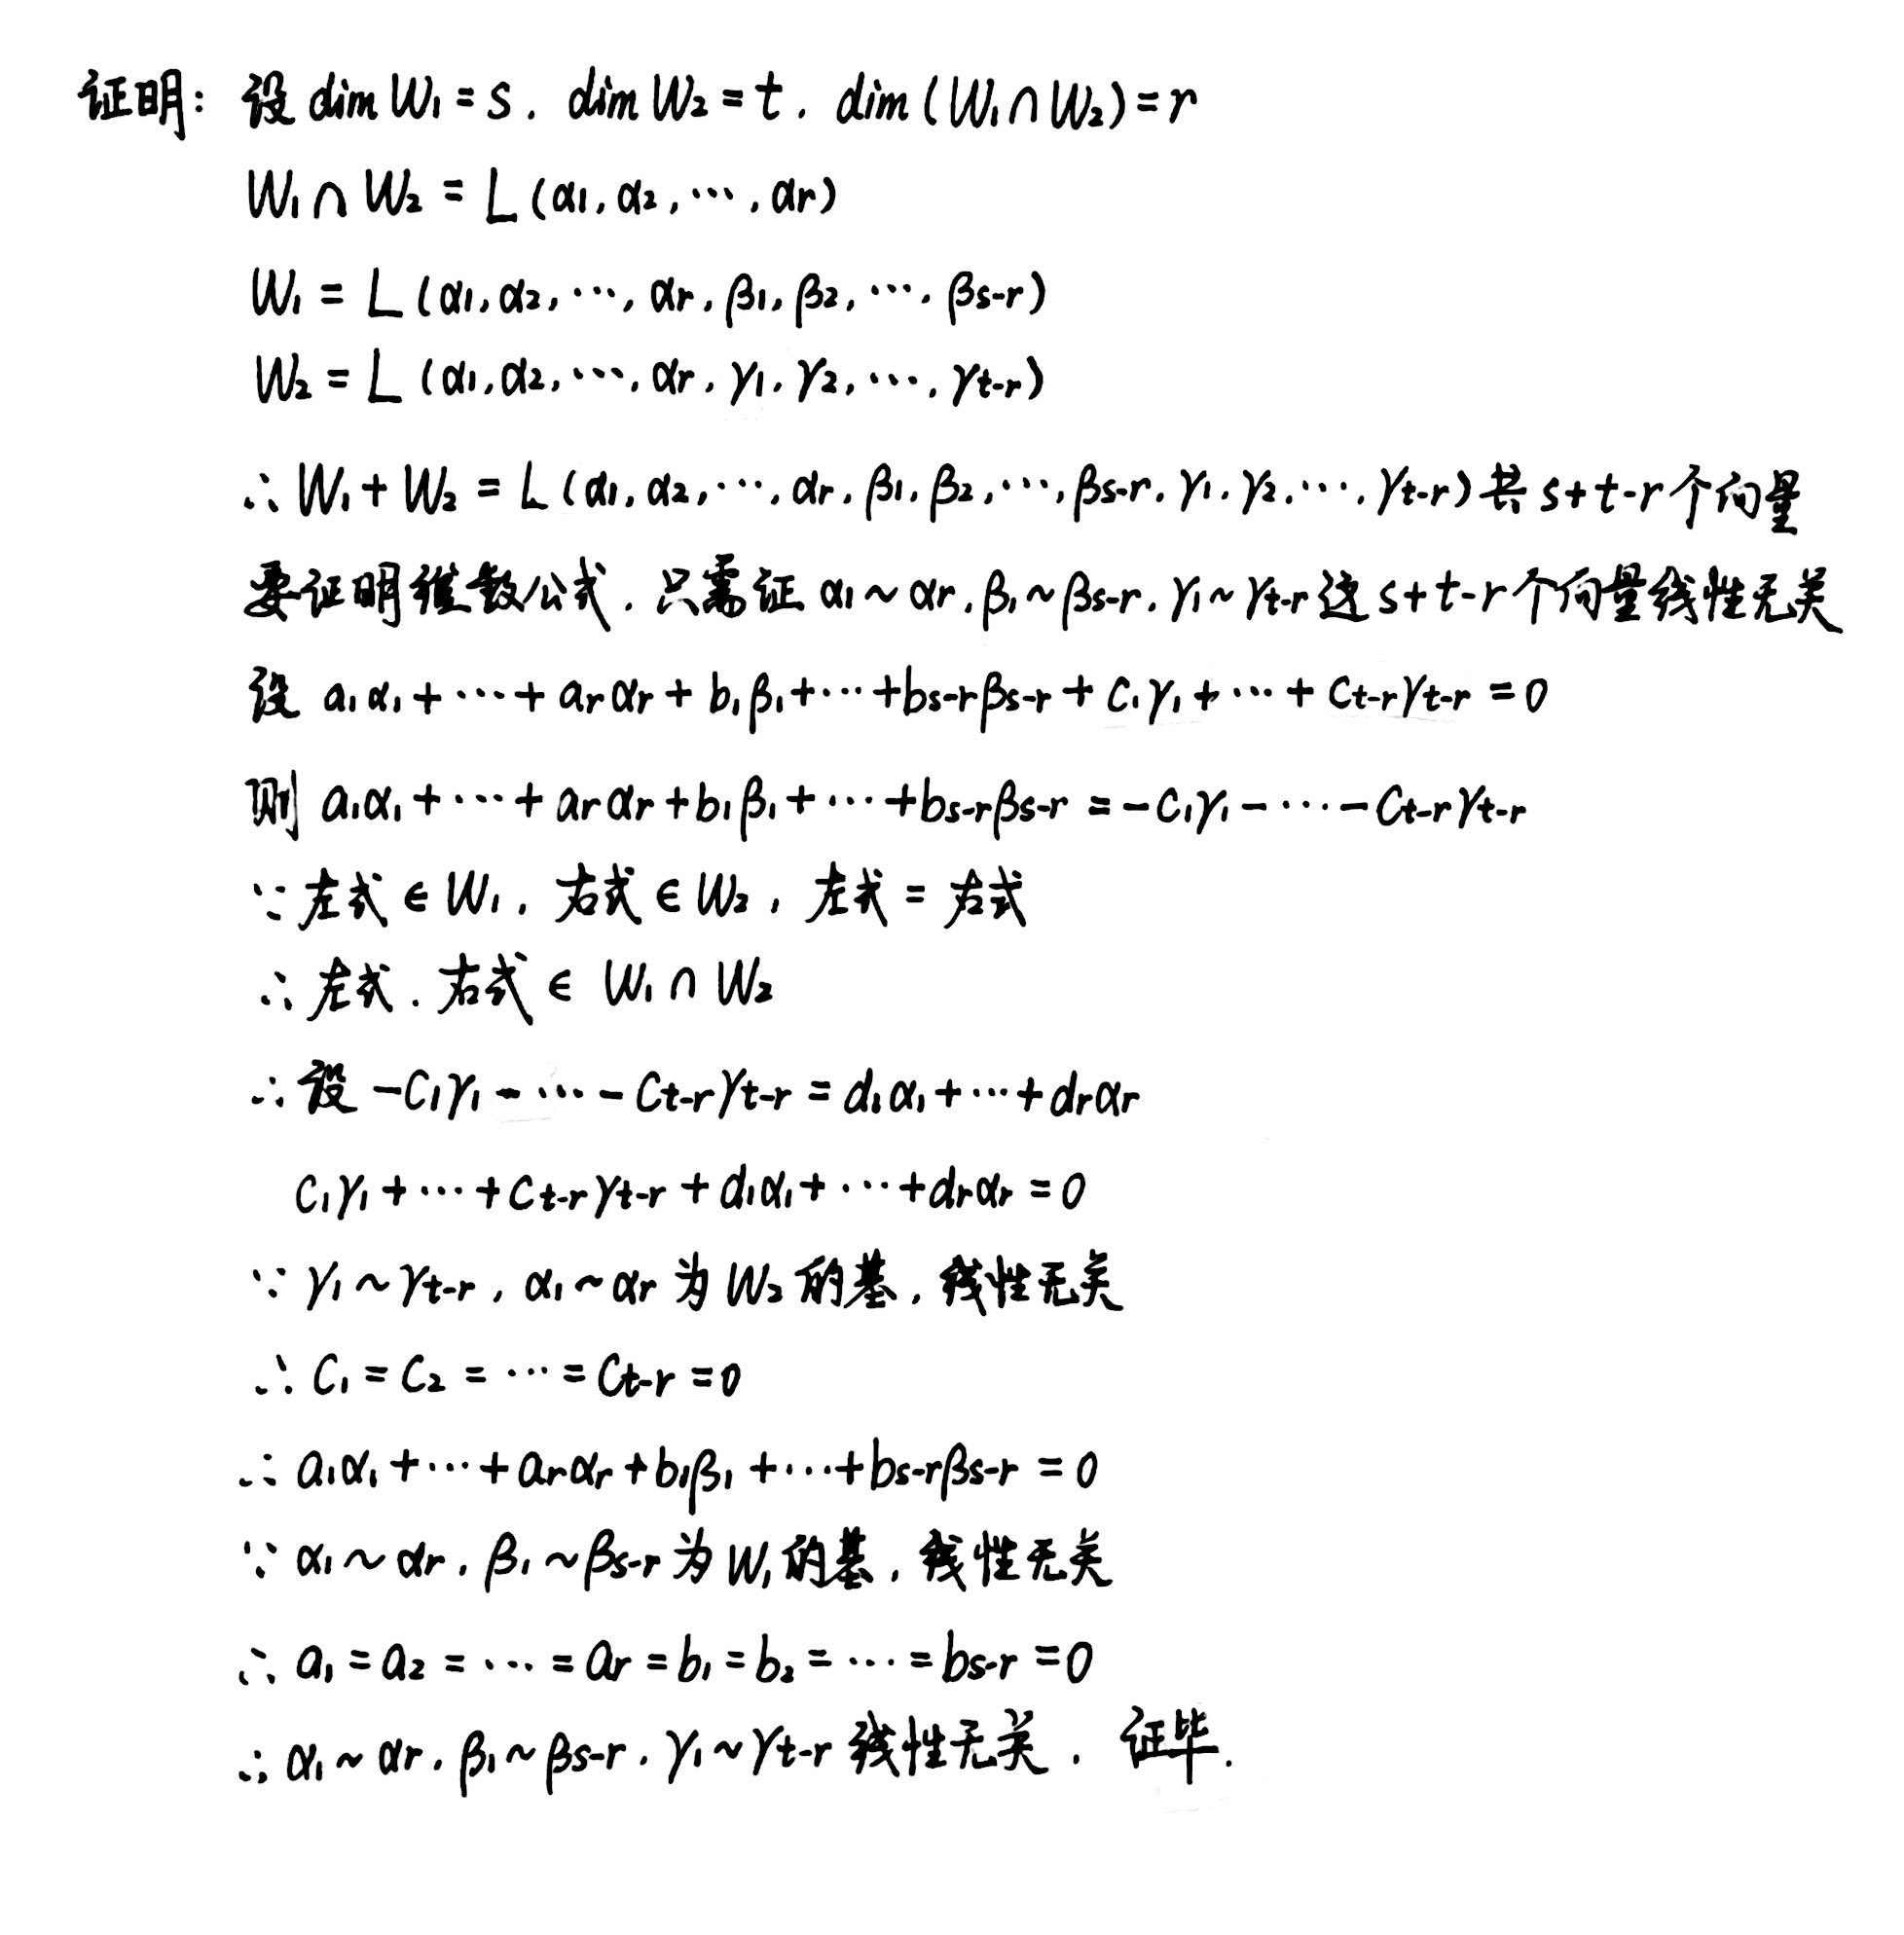 证明: 设 dim W₁ = s. dim W₂ = t. dim (W₁∩W₂) = r
W₁∩W₂ = L (α₁, α₂, ⋯, αr)
W₁ = L (α₁, α₂, ⋯, αr, β₁, β₂, ⋯, βs-r)
W₂ = L (α₁, α₂, ⋯, αr, γ₁, γ₂, ⋯, γt-r)
∴ W₁ + W₂ = L (α₁, α₂, ⋯, αr, β₁, β₂, ⋯, βs-r, γ₁, γ₂, ⋯, γt-r) 共 s+t-r 个向量
要证明维数公式, 只需证 α₁~αr, β₁~βs-r, γ₁~γt-r 这 s+t-r 个向量线性无关
设 a₁α₁ + ⋯ + arαr + b₁β₁ + ⋯ + bs-rβs-r + c₁γ₁ + ⋯ + ct-rγt-r = 0
则 a₁α₁ + ⋯ + arαr + b₁β₁ + ⋯ + bs-rβs-r = -c₁γ₁ - ⋯ - ct-rγt-r
∵ 左式 ∈ W₁, 右式 ∈ W₂, 左式 = 右式
∴ 左式, 右式 ∈ W₁∩W₂
∴ 设 -c₁γ₁ - ⋯ - ct-rγt-r = d₁α₁ + ⋯ + drαr
c₁γ₁ + ⋯ + ct-rγt-r + d₁α₁ + ⋯ + drαr = 0
∵ γ₁~γt-r, α₁~αr 为 W₂ 的基, 线性无关
∴ c₁ = c₂ = ⋯ = ct-r = 0
∴ a₁α₁ + ⋯ + arαr + b₁β₁ + ⋯ + bs-rβs-r = 0
∵ α₁~αr, β₁~βs-r 为 W₁ 的基, 线性无关
∴ a₁ = a₂ = ⋯ = ar = b₁ = b₂ = ⋯ = bs-r = 0
∴ α₁~αr, β₁~βs-r, γ₁~γt-r 线性无关. 证毕.